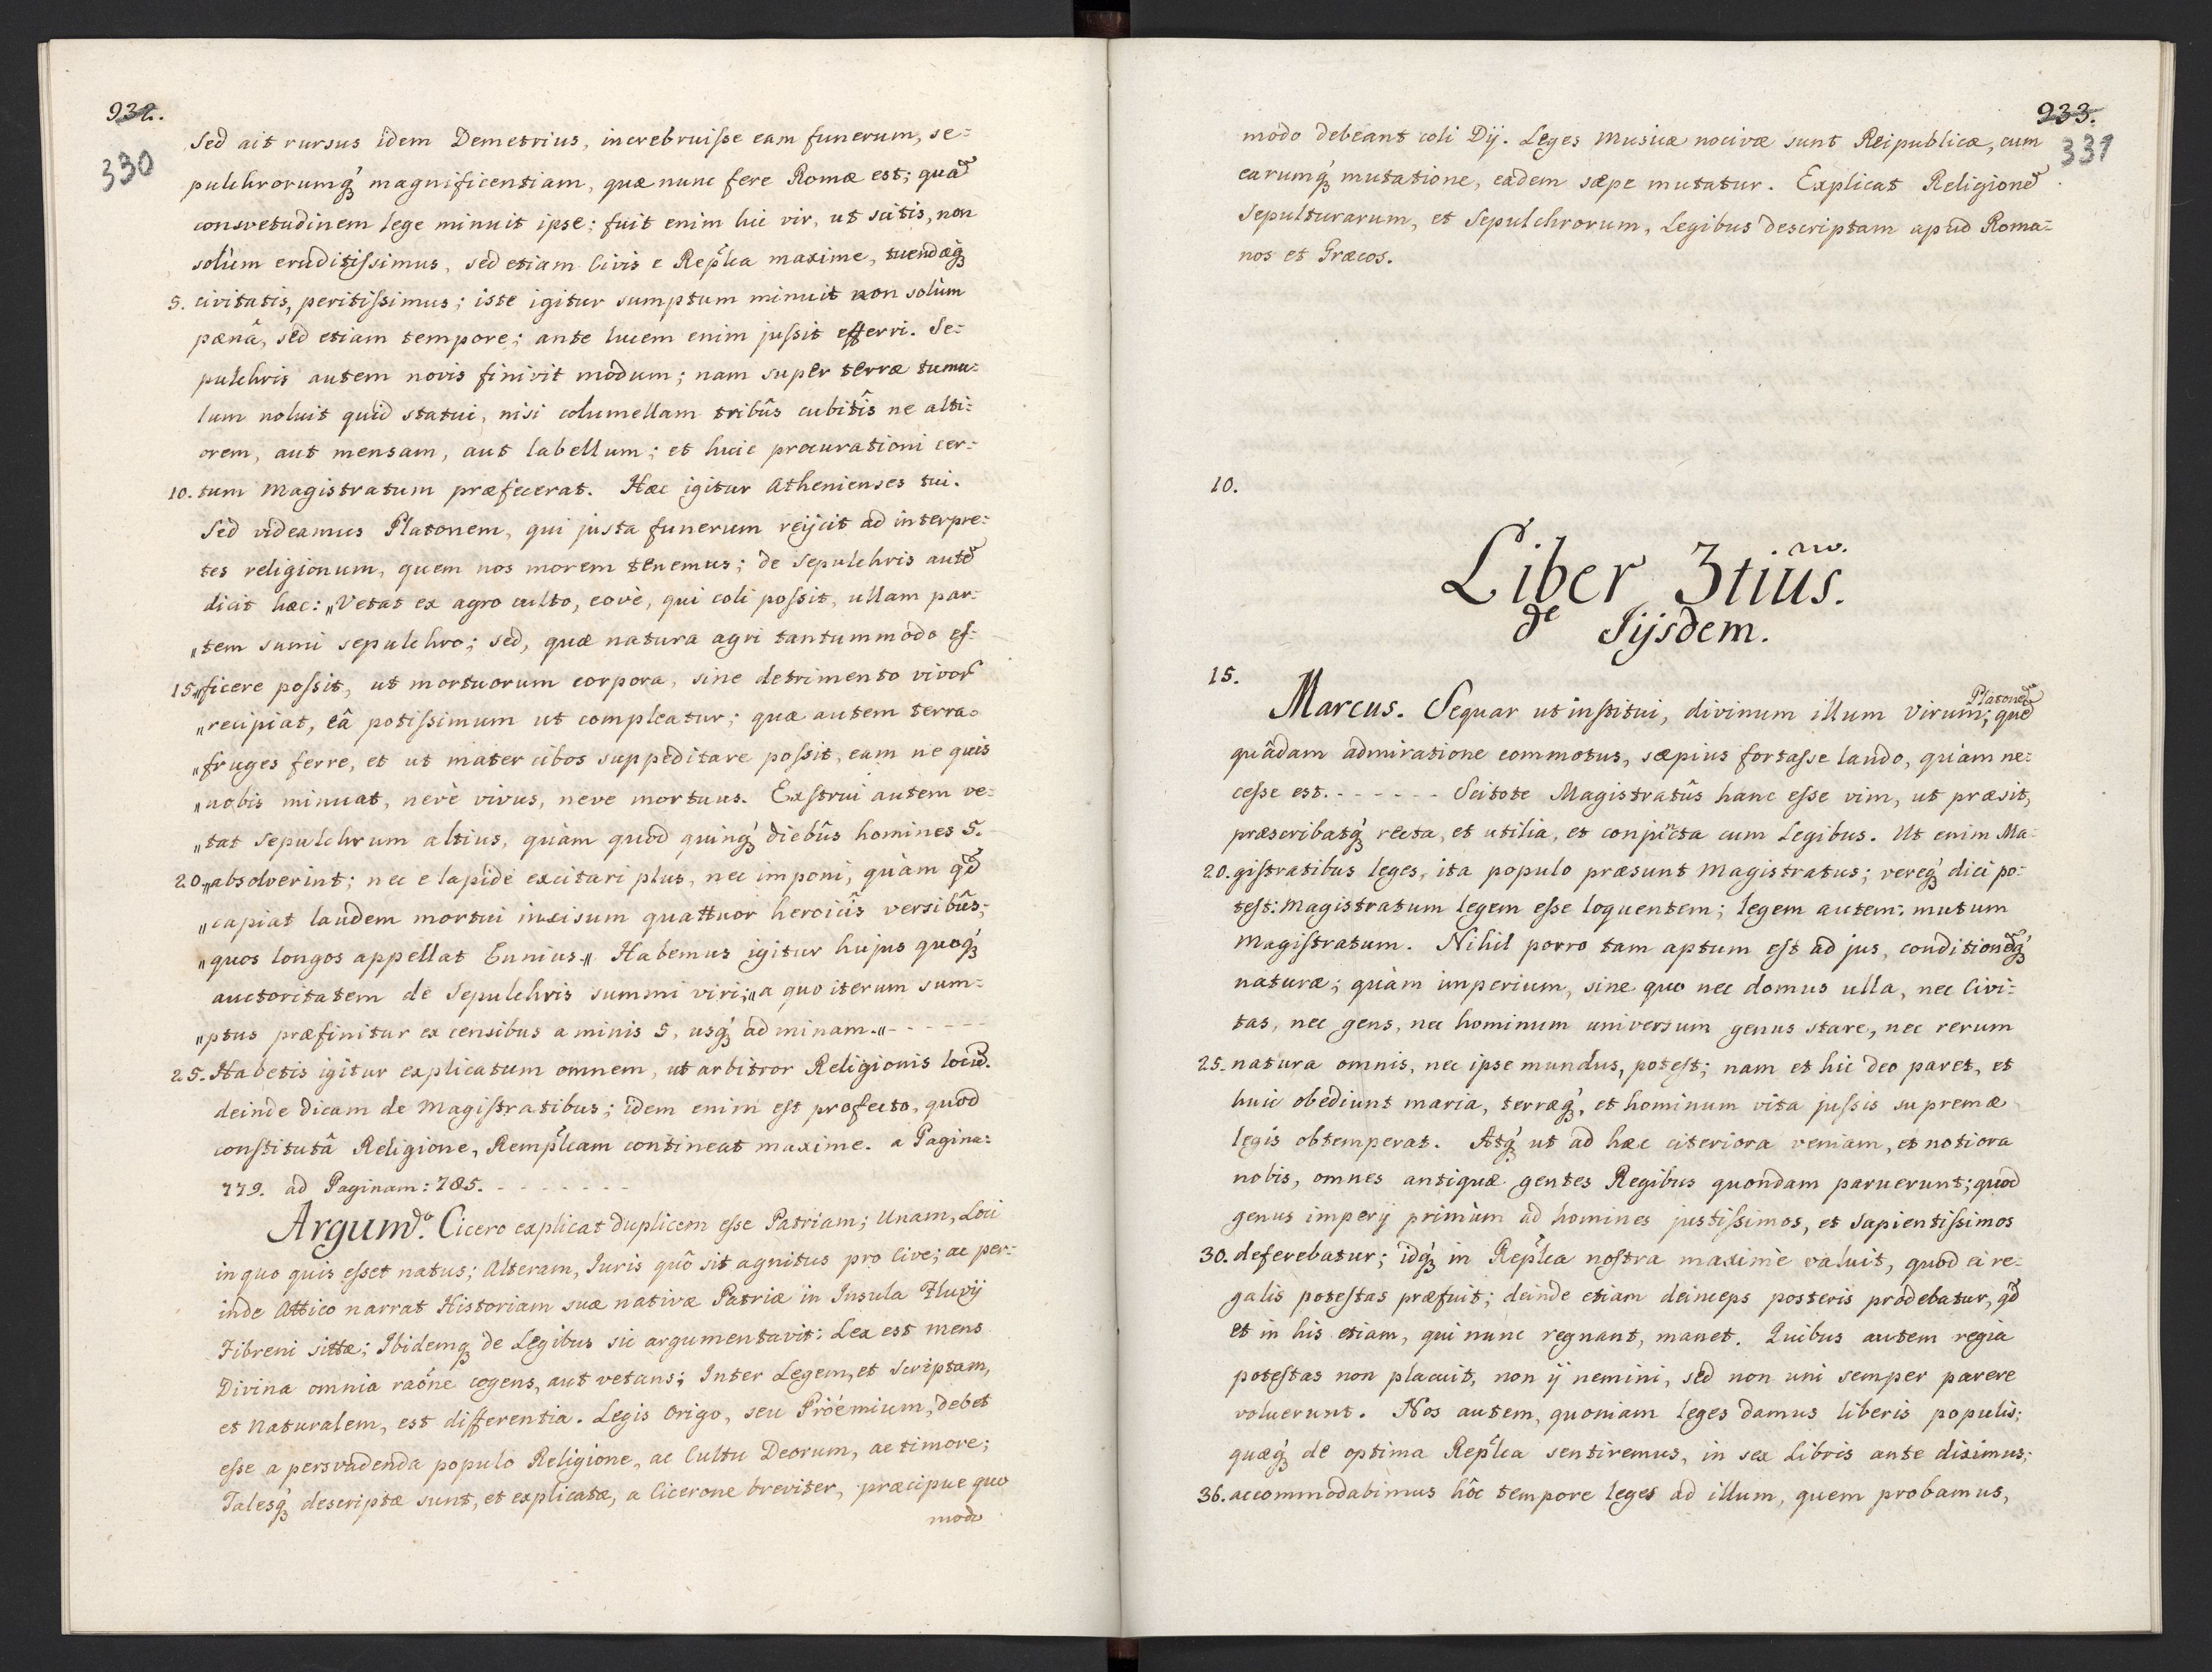 932.
330
Sed ait rursus idem Demetrius, increbruiſse eam funerum, se=
pulchrorumq́ꝫ magnificentiam, quæ nunc fere Romæ est; quã
consvetudinem lege minuit ipse; fuit enim hic vir, ut scitis, non
solùm eruditiſsimus, sed etiam Civis e Rep̃lca maxime, tuendæq́ꝫ
5. civitatis, peritiſsimus; iste igitur sumptum minuit non solùm
pænâ, sed etiam tempore; ante lucem enim juſsit efferri. Se=
pulchris autem novis finivit modum; nam super terræ tumu=
lum noluit quid statui, nisi columellam tribûs cubitîs ne alti=
orem, aut mensam, aut labellum; et huic procurationi cer=
10. tum Magistratum præfecerat. Hæc igitur Athenienses tui.
Sed videamus Platonem, qui justa funerum reijcit ad interpre=
tes religionum, quem nos morem tenemus; de Sepulchris autẽ
dicit hæc: „Vetat ex agro culto, eovè, qui coli poſsit, ullam par=
„tem sumi sepulchro; sed, quæ natura agri tantummodo ef=
15. „ficere poſsit, ut mortuorum corpora, sine detrimento vivoꝝ
„recipiat, eâ potiſsimum ut compleatur; quæ autem terra
„fruges ferre, et ut mater cibos suppeditare poſsit, eam ne quis
„nobis minuat, nevè vivus, neve mortuus. Exſtrui autem ve=
„tat Sepulchrum altius, quàm quod quinq́ꝫ diebûs homines 5.
20. „absolverint; nec e lapide excitari plus, nec imponi, quàm qd̃
„capiat laudem mortui incisum quattuor heroicîs versibûs;
„quos longos appellat Ennius.„ Habemus igitur hujus quoq́ꝫ
auctoritatem de Sepulchris summi viri; „a quo iterum sum=
„ptus præfinitur ex censibus a minis 5, usq́ꝫ ad minam.„ - - - - - -
25. Habetis igitur explicatum omnem, ut arbitror Religionis locũ.
deinde dicam de Magiſtratibus; idem enim eſt profecto, quod
conſtitutâ Religione, Remp̃lcam contineat maxime. a Pagina:
779. ad Paginam: 785. - - - - - - -
Argumto. Cicero explicat duplicem eſse Patriam; Unam, Loci
in quo quis eſset natus; Alteram, Juris quô sit agnitus pro Cive; ac per=
inde Attico narrat Historiam suæ nativæ Patriæ in Insula Fluvij
Fibreni sittæ; Ibidemqꝫ de Legibus sic argumentavit: Lex est mens
Divina omnia raõne cogens, aut vetans; Inter Legem, et Scriptam,
et Naturalem, est differentia. Legis Origo, seu Proëmium, debet
eſse a persvadenda populo Religione, ac Cultu Deorum, ac timore;
Talesq́ꝫ descriptæ sunt, et explicatæ, a Cicerone breviter, præcipue quo
modo
933.
331
modo debeant coli Dij. Leges Musicæ nocivæ sunt Reipublicæ, cum
earumq́ꝫ mutatione, eadem sæpe mutatur. Explicat Religionẽ
Sepulturarum, et Sepulchrorum, Legibus descriptam apud Roma=
nos et Græcos.
10.
Liber 3tiusmo.
de Iijsdem.
15.
Marcus. Sequar ut inſtitui, divinum illum Virum, Platonẽ; quẽ
quâdam admiratione commotus, sæpius fortaſse laudo, quàm ne=
ceſse est. - - - - - - Scitote Magistratûs hanc eſse vim, ut præsit,
præscribatq́ꝫ recta, et utilia, et conjũcta cum Legibus. Ut enim Ma=
20. giſtratibus leges, ita populo præsunt Magistratus; vereq́ꝫ dici po=
teſt: Magistratum legem eſse loquentem; legem autem: mutum
Magiſtratum. Nihil porro tam aptum eſt ad jus, conditionẽq́ꝫ
naturæ; quàm imperium, sine quo nec domus ulla, nec Civi=
tas, nec gens, nec hominum universum genus stare, nec rerum
25. natura omnis, nec ipse mundus, poteſt; nam et hic deo paret, et
huic obediunt maria, terræq́ꝫ, et hominum vita juſsis supremæ
legis obtemperat. Atq́ꝫ ut ad hæc citeriora veniam, et notiora
nobis, omnes antiquæ gentes Regibus quondam paruerunt; quod
genus imperij primùm ad homines juſtiſsimos, et Sapientiſsimos
30. deferebatur; idq́ꝫ in Rep̃lca noſtra maximè valuit, quod ei re=
galis poteſtas præfuit; deinde etiam deinceps posteris prodebatur, qd̃
et in his etiam, qui nunc regnant, manet. Quibus autem regia
poteſtas non placuit, non ij nemini, sed non uni semper parere
voluerunt. Nos autem, quoniam leges damus liberis populis;
quæq́ꝫ de optima Rep̃lca sentiremus, in sex Libris ante diximus;
36. accommodabimus hôc tempore leges ad illum, quem probamus,